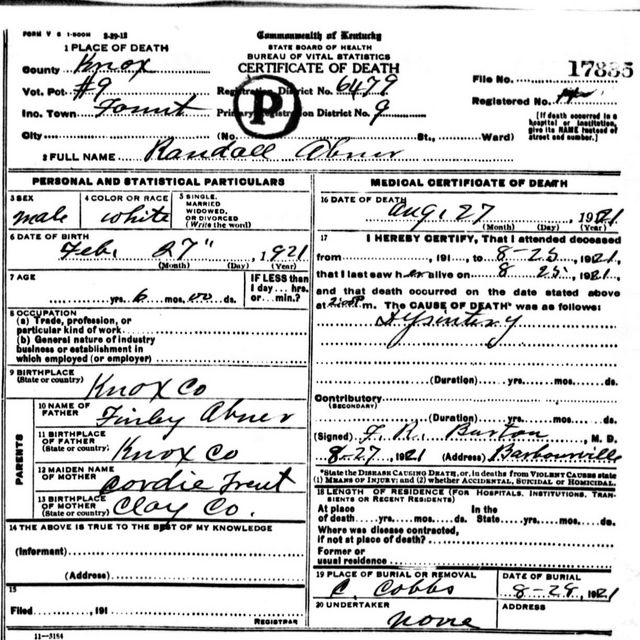 FORM V S 1-500M 3-29-18
Commonwealth of Kentucky
STATE BOARD OF HEALTH
BUREAU OF VITAL STATISTICS
CERTIFICATE OF DEATH
1 PLACE OF DEATH
County Knox
File No. 17835
Vot. Pct #9
Registration District No. 6479
Registered No.
Inc. Town Fount
Primary Registration District No. 9
P
[If death occurred in a hospital or institution, give its NAME instead of street and number.]
City (No St., Ward)
2 FULL NAME Randall Abner
PERSONAL AND STATISTICAL PARTICULARS
3 SEX male
4 COLOR OR RACE white
5 SINGLE, MARRIED WIDOWED, OR DIVORCED (Write the word)
6 DATE OF BIRTH Feb. 27", 1921
(Month) (Day) (Year)
7 AGE
yrs. 6 mos. 00 ds.
IF LESS than 1 day... hrs. or... min.?
8 OCCUPATION
(a) Trade, profession, or particular kind of work
(b) General nature of industry business or establishment in which employed (or employer)
9 BIRTHPLACE (State or country) Knox Co
PARENTS
10 NAME OF FATHER Finley Abner
11 BIRTHPLACE OF FATHER (State or country) Knox Co
12 MAIDEN NAME OF MOTHER Cordie Trent
13 BIRTHPLACE OF MOTHER (State or country) Clay Co.
14 THE ABOVE IS TRUE TO THE BEST OF MY KNOWLEDGE
(Informant)
(Address)
15
Filed , 191
REGISTRAR
11—3184
MEDICAL CERTIFICATE OF DEATH
16 DATE OF DEATH Aug. 27, 1921
(Month) (Day) (Year)
17 I HEREBY CERTIFY, That I attended deceased
from , 191 , to 8-25, 1921,
that I last saw h alive on 8 25, 1921,
and that death occurred on the date stated above
at m. The CAUSE OF DEATH* was as follows:
Dysintery
(Duration) yrs. mos. ds.
Contributory (SECONDARY)
(Duration) yrs. mos. ds.
(Signed) F. R. Burton, M. D.
8-27, 1921 (Address) Barbourville
*State the DISEASE CAUSING DEATH, or, in deaths from VIOLENT CAUSES state
(1) MEANS OF INJURY; and (2) whether ACCIDENTAL, SUICIDAL or HOMICIDAL.
18 LENGTH OF RESIDENCE (FOR HOSPITALS, INSTITUTIONS, TRANSIENTS OR RECENT RESIDENTS)
At place of death yrs. mos. ds. In the State yrs. mos. ds.
Where was disease contracted, if not at place of death?
Former or usual residence
19 PLACE OF BURIAL OR REMOVAL C. Cobbs
DATE OF BURIAL 8-28, 1921
20 UNDERTAKER none
ADDRESS